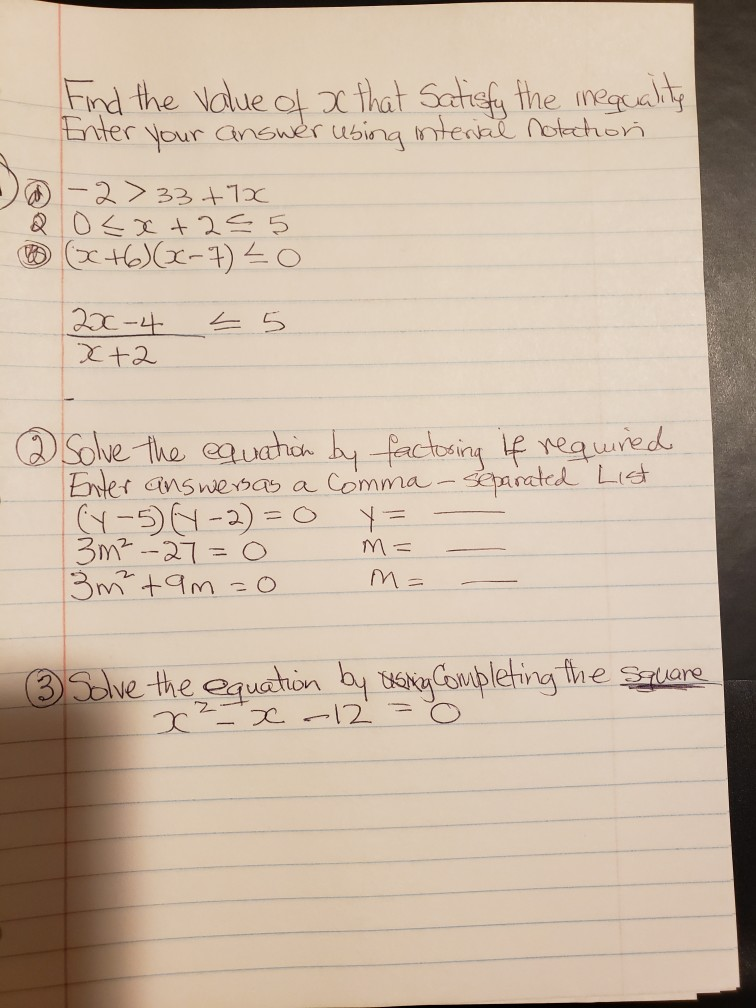 Find the value of x that Satisfy the inequality
Enter your answer using interval notation
① -2 > 33 + 7x
2 0 ≤ x + 2 ≤ 5
(x+6)(x-7) ≤ 0
2x-4 ≤ 5
x+2
② Solve the equation by factoring if required
Enter answers as a Comma-separated List
(y-5)(y-2) = 0 y = ___
3m² - 27 = 0 m = ___
3m² + 9m = 0 m = ___
③ Solve the equation by Completing the square
x² - x - 12 = 0